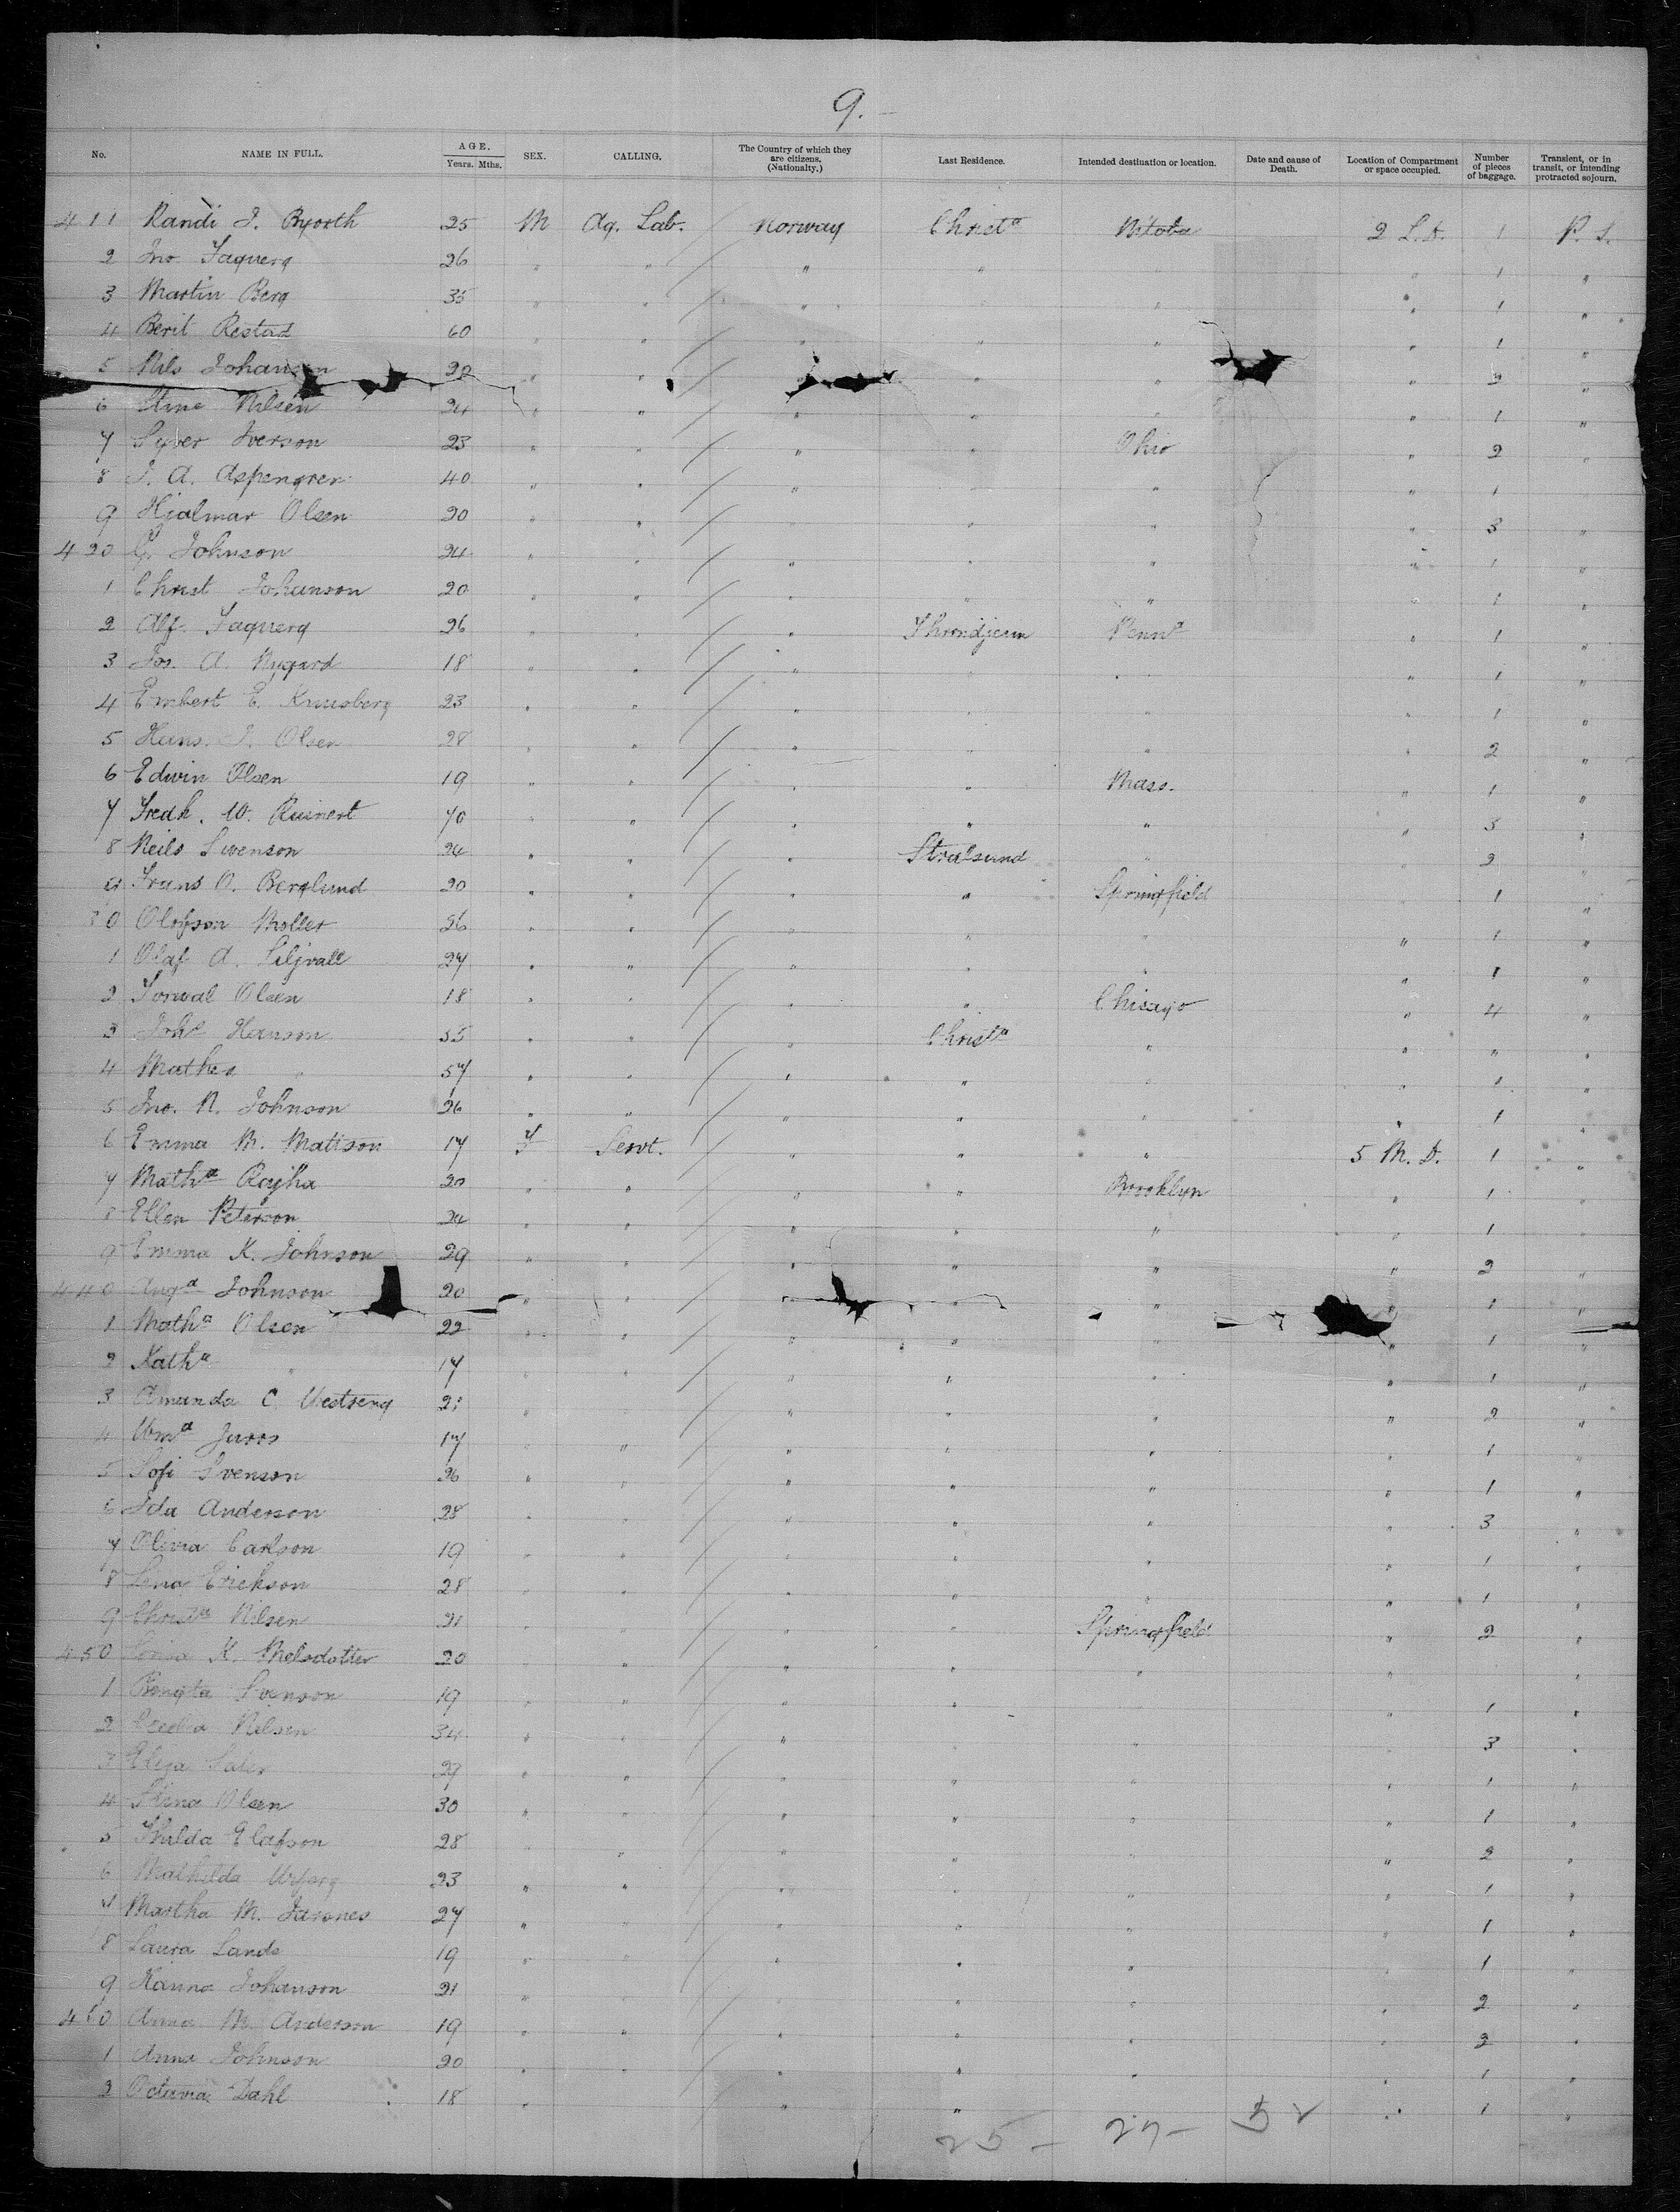 9.
No. NAME IN FULL. AGE. Years. Mths. SEX. CALLING. The Country of which they are citizens. (Nationalty.) Last Residence. Intended destination or location. Date and cause of Death. Location of Compartment or space occupied. Number of pieces of baggage. Transient, or in transit, or intending protracted sojourn.
411 Randi J. 25 M Ag. Lab. Norway Christa 2 L.D. 1 P. S.
2 Jno. 26 " " " " " " 1 "
3 Martin Berg 35 " " " " " " 1 "
4 Berit Restad 60 " " " " " " 1 "
5 Nils Johanson 20 " " " " " " 2 "
6 Stine Nilsen 24 " " " " " " 1 "
7 Syver Iverson 23 " " " " Ohio " 2 "
8 J. A. Aspengren 40 " " " " " " 1 "
9 Hjalmar Olsen 20 " " " " " " 3 "
420 G. Johnson 24 " " " " " " 1 "
1 Christ Johanson 20 " " " " " " 1 "
2 Alf. 26 " " " Throndjem Penna " 1 "
3 Jos. A. Nygard 18 " " " " " " 1 "
4 Embert E. 23 " " " " " " 1 "
5 Hans J. Olsen 28 " " " " " " 2 "
6 Edwin Olsen 19 " " " " Mass. " 1 "
7 Fredk. W. 40 " " " " " " 3 "
8 Neils Swenson 24 " " " Stralsund " " 2 "
9 Frans O. Berglund 20 " " " " Springfield " 1 "
30 Olofson Moller 26 " " " " " " 1 "
1 Olaf A. Liljvall 27 " " " " " " 1 "
2 Torwal Olsen 18 " " " " Chicago " 4 "
3 Hanson 55 " " " Christa " " " "
4 Mathea " 57 " " " " " " 1 "
5 Jno. N. Johnson 26 " " " " " " 1 "
6 Emma M. Matison 17 F Servt. " " " 5 M. D. 1 "
7 Matha 20 " " " " Brooklyn " 1 "
8 Ellen Peterson 24 " " " " " " 1 "
9 Emma K. Johnson 29 " " " " " " 2 "
440 Auga Johnson 20 " " " " " " 1 "
1 Matha Olsen 22 " " " " " " 1 "
2 Katha " 17 " " " " " " 1 "
3 Amanda C. 21 " " " " " " 2 "
4 17 " " " " " " 1 "
5 Sofi Svenson 26 " " " " " " 1 "
6 Ida Anderson 28 " " " " " " 3 "
7 Olivia Carlson 19 " " " " " " 1 "
8 Lena Erickson 28 " " " " " " 1 "
9 Christa Nilsen 21 " " " " Springfield " 2 "
450 K. 20 " " " " " "
1 Bengta Svenson 19 " " " " " " 1 "
2 Cecelia Nilsen 34 " " " " " " 3 "
3 27 " " " " " " 1 "
4 Stina Olsen 30 " " " " " " 1 "
5 Thilda Elafson 28 " " " " " " 2 "
6 Mathilda 23 " " " " " " 1 "
7 Martha M. 27 " " " " " " 1 "
8 Laura Lande 19 " " " " " " 1 "
9 Hanna Johanson 21 " " " " " " 2 "
460 Anna M. Anderson 19 " " " " " " 2 "
1 Anna Johnson 20 " " " " " " 1 "
2 Octavia Dahl 18 " " " " " 1 "
25 - 27 - 52